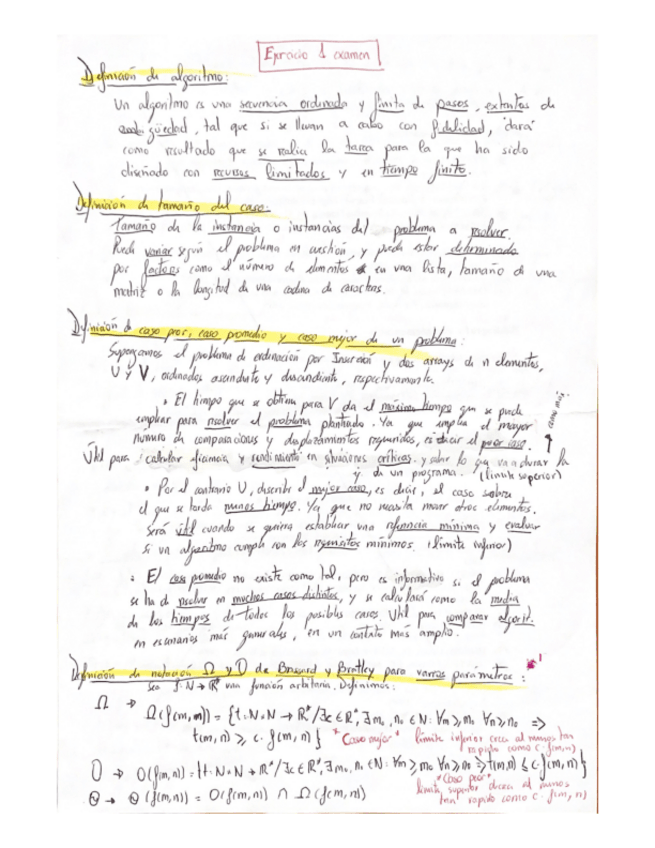 Ejercicio 1 examen
Definición de algoritmo:
Un algoritmo es una secuencia ordenada y finita de pasos, exentos de
ambigüedad, tal que si se llevan a cabo con fidelidad, dará
como resultado que se realice la tarea para la que ha sido
diseñado con recursos limitados y en tiempo finito.
Definición de tamaño del caso:
Tamaño de la instancia o instancias del problema a resolver.
Puede variar según el problema en cuestión, y puede estar determinado
por factores como el número de elementos en una lista, tamaño de una
matriz o la longitud de una cadena de caracteres.
Definición de caso peor, caso promedio y caso mejor de un problema:
Supongamos el problema de ordenación por Inserción y dos arrays de n elementos,
U y V, ordenados ascendente y descendente, respectivamente.
• El tiempo que se obtiene para V da el máximo tiempo que se puede
emplear para resolver el problema planteado. Ya que emplea el mayor
número de comparaciones y desplazamientos requeridos, es decir el peor caso.
↑ como más
Útil para calcular eficiencia y rendimiento en situaciones críticas. y saber lo que va a durar la
ej. de un programa. (límite superior)
• Por el contrario U, describe el mejor caso, es decir, el caso sobre
el que se tarda menos tiempo. Ya que no necesita mover otros elementos.
Será útil cuando se quiera establecer una referencia mínima y evaluar
si un algoritmo cumple con los requisitos mínimos. (límite inferior)
• El caso promedio no existe como tal, pero es informativo si el problema
se ha de resolver en muchos casos distintos, y se calculará como la media
de los tiempos de todos los posibles casos. Útil para comparar algorit.
en escenarios más generales, en un contexto más amplio.
Definición de notación Ω y O de Brassard y Bratley para varios parámetros: *1
sea f: N → R* una función arbitraria. Definimos:
Ω → Ω(f(m,n)) = {t: N×N → R*/∃c ∈ R⁺, ∃m₀, n₀ ∈ N: ∀m ≥ m₀ ∀n ≥ n₀ =>
t(m,n) ≥ c·f(m,n)} *Caso mejor* límite inferior crece al menos tan
rapido como c·f(m,n)
O → O(f(m,n)) = {t: N×N → R*/∃c ∈ R⁺, ∃m₀, n₀ ∈ N: ∀m ≥ m₀ ∀n ≥ n₀ => t(m,n) ≤ c·f(m,n)}
*Caso peor*
límite superior crece al menos
tan rapido como c·f(m,n)
Θ → Θ(f(m,n)) = O(f(m,n)) ∩ Ω(f(m,n))